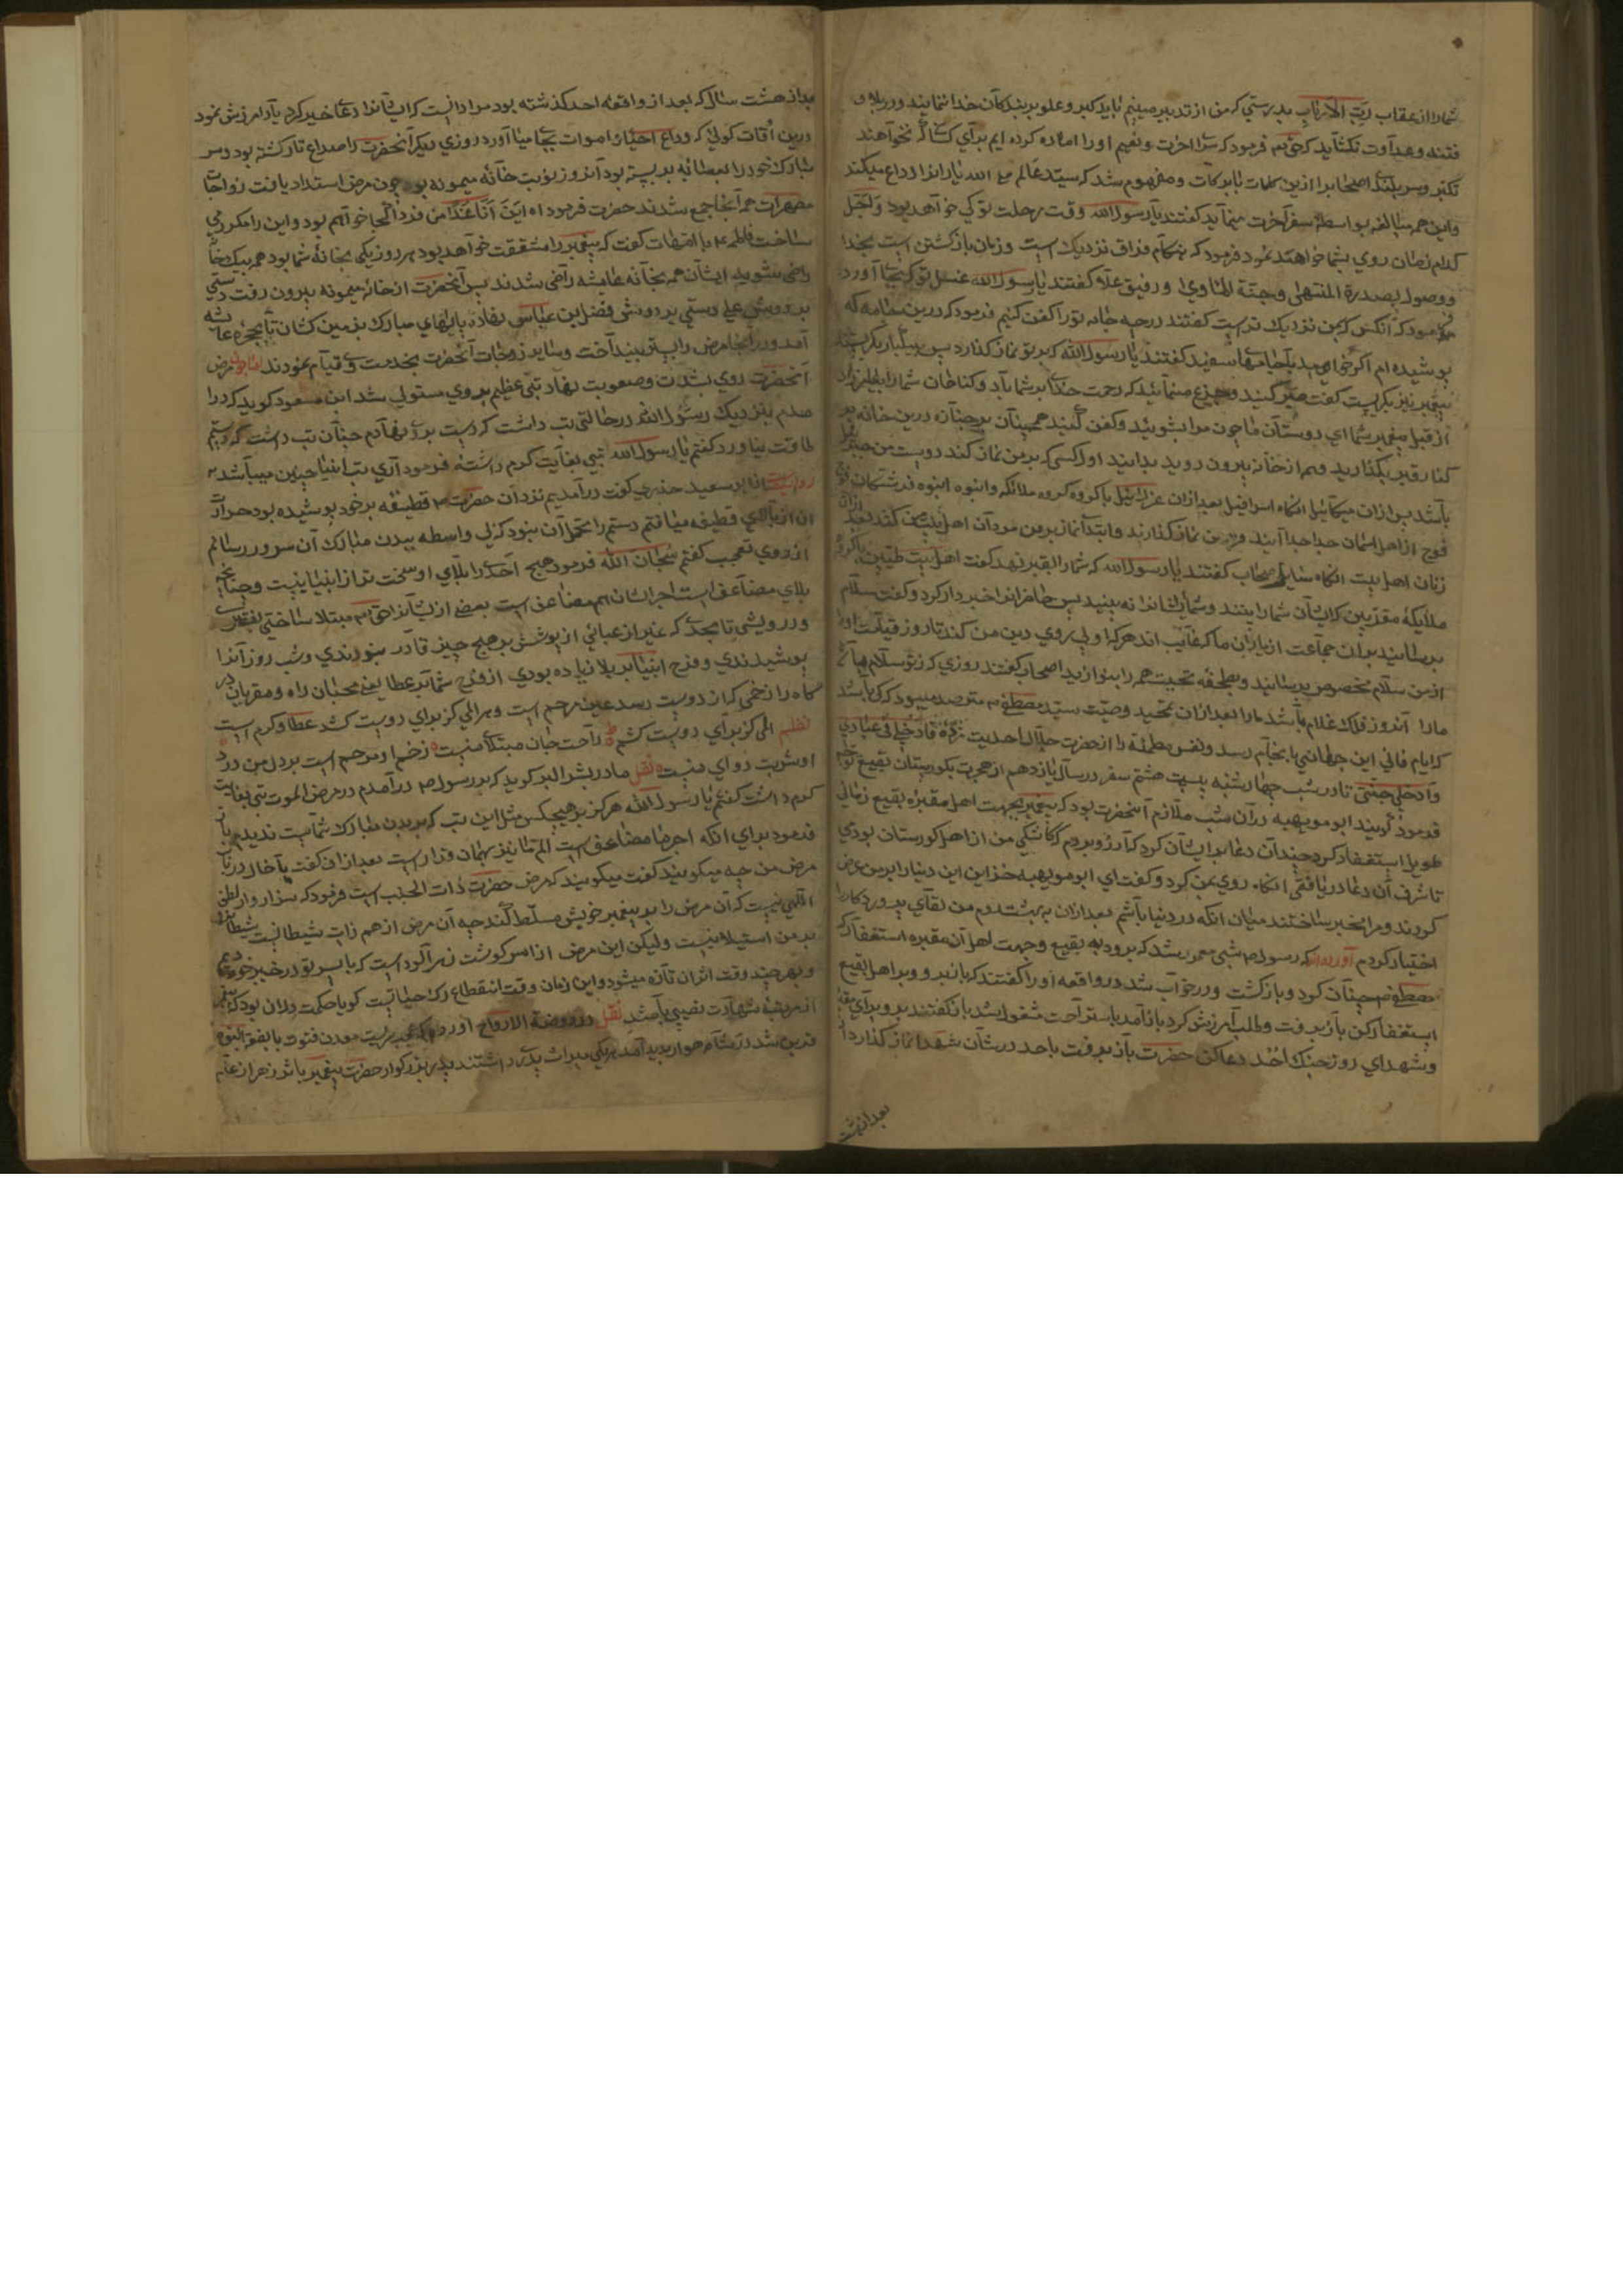 شما را از عقاب رب الارباب بدرستی که من از تدبیر میبینم باید کبر و علو بر بندکان خدا ننمایند و در بلاد
فتنه و عداوت نکشاید که حق تعالی فرمود که سرا اخرت و نعیم او را اماده کرده ایم برای کسانی که نخواهند
تکبر و سربلندی اصحاب را ازین کلمات با برکات و مفهوم شد که سید عالم صلی الله یارانرا وداع میکند
و این همه مبالغه بواسطه سفر آخرت مینماید کفتند یا رسول الله وقت رحلت تو کی خواهد بود و لجل
کدام زمان روی بشما خواهد نمود فرمود که هنکام فراق نزدیک است و زمان بازکشتن است بخدا
و وصول بصدرة المنتهی و جنة الماوی و رفیق اعلا کفتند یا رسول الله غسل تو که بجا آورد
فرمود که انکس که بمن نزدیک تر است کفتند در چه جامه تو را کفن کنیم فرمود که درین جامه که
پوشیده ام اکر خواهید یا جامهای سفید کفتند یا رسول الله که بر تو نماز کذارد پس
پیغمبر نیز بکریست کفت صبر کنید و جزع منمائید که رحمت خدای بر شما باد و کناهان شما را
از قبل پیغمبر شما ای دوستان ما چون مرا بشوئید و کفن کنید همچنان بر جنازه درین خانه بر
کنار قبر بکذارید و هم از خانه بیرون روید بدانید اول کسی که بر من نماز کند دوست من جبرئیل
باشد پس ازان میکائیل انکاه اسرافیل بعد ازان عزرائیل با کروه کروه ملائکه و انبوه انبوه فرشتکان
فوج از اهل اسمان جدا جدا آیند و بر من نماز کذارند و ابتدای نماز بر من مردان اهل بیت من کنند بعد ازان
زنان اهل بیت انکاه سایر اصحاب کفتند یا رسول الله که شما را بقبر نهد کفت اهل بیت طیبین با کروه
ملائکه مقربین که ایشان شما را بینند و شما ایشانرا نه بینید پس حاضرانرا خبردار کرد و کفت سلام
برسانید بدان جماعت از یاران ما که غایب اند هر که او پی روی دین من کند تا روز قیامت او را
از من سلام مخصوص برسانید و بتحفه تحیت همه را بنوازید اصحاب کفتند روزی که
ما را آنروز فلک غلام باشد ما را بعد ازان تمهید وصیت سید مصطفی مترصد میبود که کی باشد
که ایام فانی این جهانی با نجام رسد و نفس مطمئنه را از حضرت جلال احدیت فادخلی فی عبادی
وادخلی جنتی تا در شب چهارشنبه بیست هشتم سفر در سال یازدهم از هجرت بکورستان بقیع
فرمود کویند ابو مویهبه در آن شب ملازم آنحضرت بود که پیغمبر بجهت اهل مقبره بقیع زمانی
طویل استغفار کرد چندان دعا برایشان کرد که آرزو بردم که کاشکی من از اهل کورستان بودی
تا شرف آن دعا دریافتمی انکاه روی بمن کرد و کفت ای ابو مویهبه خزاین این دنیا را بر من عرض
کردند و مرا مخیر ساختند میان انکه در دنیا باشم بعد ازان به بهشت روم من لقای پروردکار را
اختیار کردم آورده اند که رسول شبی مامور شد که برود به بقیع و جهت اهل آن مقبره استغفار کند
مصطفی چنان کرد و بازکشت و در خواب شد در واقعه او را کفتند که باز برو و بر اهل بقیع
استغفار کن باز برفت و طلب آمرزش کرد باز آمد باستراحت مشغول شد باز کفتند برو برای
و شهدای روز جنک احد دعا کن حضرت باز برفت باحد در شان شهدا نماز کذارد
بعد از هشت
بعد از هشت سال که بعد از واقعه احد کذشته بود مراد انست که ایشانرا دعا خیر کرد یا آمرزش نمود
درین اوقات کوئی که وداع احیا و اموات بجا میآورد روزی دیکر آنحضرت را صداع تارک شته بود و سر
مبارک خود را بعصابه بر بسته بود آنروز نوبت خانه میمونه بود چون مرض استداد یافت زوجات
مطهرات همه آنجا جمع شدند حضرت فرمود اه این انا غدا من فردا کجا خواهم بود و این را مکرر می
ساخت فاطمه با امهات کفت که پیغمبر را مشقت خواهد بود هر روز یکی بخانهٔ شما بود همه بیک خانه
راضی شوید ایشان همه بخانه عایشه راضی شدند پس آنحضرت از خانه میمونه بیرون رفت دستی
بر دوش علی و دستی بر دوش فضل ابن عباس نهاده پایهای مبارک بزمین کشان تا بحجره عایشه
آمد و در آنجا مرض را بستر بینداخت و سایر زوجات آنحضرت بخدمت وی قیام نمودند اما چون مرض
آنحضرت روی بشدت و صعوبت نهاد تبی عظیم بر وی مستولی شد ابن مسعود کوید که در
صدم بنزدیک رسول الله در حالتی تب داشت که دست بر وی نهادم چنان تب داشت که دستم
طاقت نیاورد کفتم یا رسول الله تبی بغایت کرم داشته فرمود آری تب انبیا چنین میباشد
روایت از ابو سعید خذری کفت درآمدیم نزد آن حضرت قطیفه بر خود پوشیده بود حرارت
آن از بالای قطیفه میافتم دستم را تحمل آن نبود که بی واسطه ببدن مبارک آن سرور رسانم
از روی تعجب کفتم سبحان الله فرمود هیچ احد را بلای او سخت تر از انبیا نیست و چنانچه
بلای مضاعف است اجر ایشان هم مضاعف است بعضی از یشانرا حق تعالی مبتلا ساختی بفقر
و درویشی تا بحدی که غیر از عبائی از پوشش بر هیچ چیز قادر نبودندی و شب روز آنرا
پوشیدندی و فرح انبیا بر بلا زیاده بودی از فرح شما بر عطا یعنی محبان راه و مقربان در
کاه را زخمی که از دوست رسد عین مرهم است و هر المی کز برای دوست کشد عطا و کرم است
نظم المی کز برای دوست کشم راحت جان مبتلای منست زخم او مرهم است بر دل من درد
او شربت دوای منست نقل مادر بشر البر کوید که بر رسول در آمدم در مرض الموت تبی بغایت
کرم داشت کفتم یا رسول الله هرکز بر هیچکس مثل این تب که بر بدن مبارک شماست ندیدم
فرمود برای انکه اجر ما مضاعف است الم ما نیز بهمان قدار است بعد ازان کفت یا خال در باب
مرض من چه میکویند کفت میکویند که مرض حضرت ذات الجنب است فرمود که سزاوار لطف
الهی نیست که آن مرض را بر پیغمبر خویش مسلط کند چه آن مرض از همزات شیطانست شیطانرا
بر من استیلا نیست ولیکن این مرض از اثر کوشت زهر آلود است که با پسر تو در خیبر خوردیم
و بهر چند وقت اثر ان تازه میشود و این زمان وقت انقطاع رک حیاتست کویا حکمت در ان بود که
از مرتبهٔ شهادت نصیبی باشد نقل در روضة الارواح آورده معدن فتوت
قرین شد زهر آن مدت یکی میراث پدری داشتند پدر بزرکوار حضرت پیغمبر